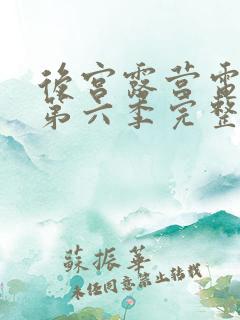 後宮露营電
第六季完整
蘇振華
未经同意禁止转载